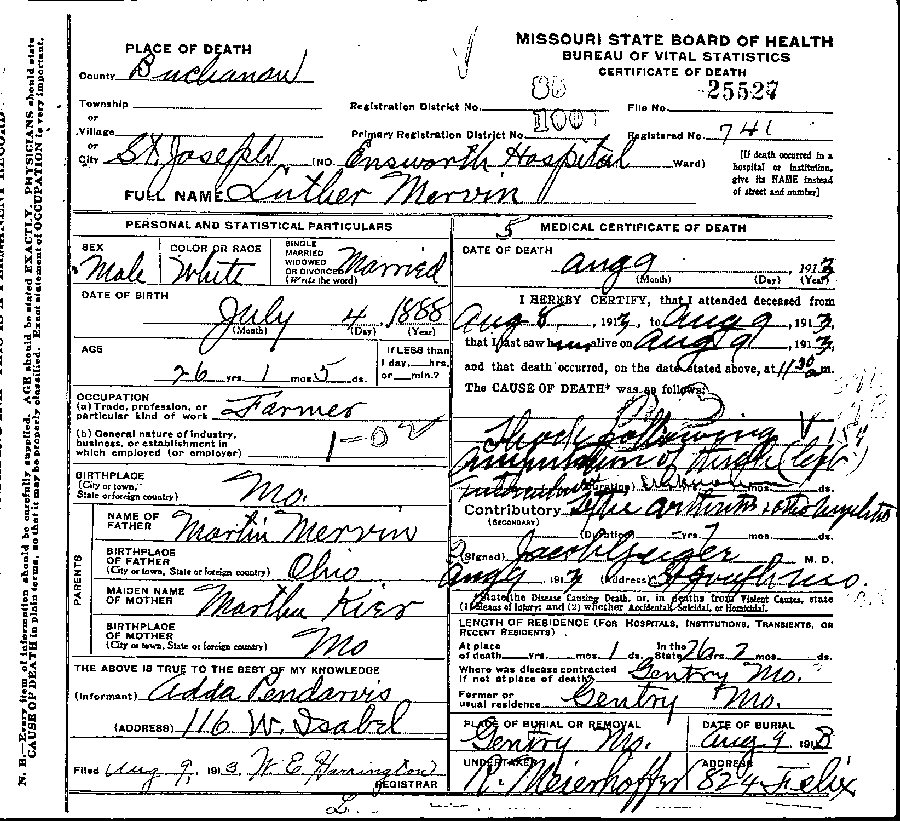 MISSOURI STATE BOARD OF HEALTH
BUREAU OF VITAL STATISTICS
CERTIFICATE OF DEATH
PLACE OF DEATH
County Buchanan
Township
or
Village
or
City St. Joseph (NO. Ensworth Hospital Ward)
Registration District No. 85 File No. 25527
Primary Registration District No. 1001 Registered No. 741
[If death occurred in a hospital or institution, give its NAME instead of street and number]
FULL NAME Luther Mervin
PERSONAL AND STATISTICAL PARTICULARS
SEX Male
COLOR OR RACE White
SINGLE MARRIED WIDOWED OR DIVORCED (Write the word) Married
DATE OF BIRTH
July 4 1888
(Month) (Day) (Year)
AGE
26 yrs. 1 mos. 5 ds.
If LESS than 1 day, hrs. or min.?
OCCUPATION
(a) Trade, profession, or particular kind of work Farmer
(b) General nature of industry, business, or establishment in which employed (or employer) 1-02
BIRTHPLACE
(City or town, State or foreign country) Mo.
PARENTS
NAME OF FATHER Martin Mervin
BIRTHPLACE OF FATHER (City or town, State or foreign country) Ohio
MAIDEN NAME OF MOTHER Martha Kier
BIRTHPLACE OF MOTHER (City or town, State or foreign country) Mo
THE ABOVE IS TRUE TO THE BEST OF MY KNOWLEDGE
(Informant) Adda Pendarvis
(ADDRESS) 116 W. Isabel
Filed Aug 9, 1913. W. E. Harrington
REGISTRAR
5 MEDICAL CERTIFICATE OF DEATH
DATE OF DEATH
Aug 9 1913
(Month) (Day) (Year)
I HEREBY CERTIFY, that I attended deceased from
Aug 8, 1913, to Aug 9, 1913,
that I last saw him alive on Aug 9, 1913,
and that death occurred, on the date stated above, at 11 30 a.m.
The CAUSE OF DEATH* was as follows:
Shock following
amputation of thigh (left)
(Duration) yrs. mos. ds.
Contributory arthritis
(SECONDARY)
(Duration) yrs. 7 mos. ds.
(Signed) Jacob Geiger M. D.
Aug 9, 1913 (Address) St Joseph Mo.
*State the Disease Causing Death, or, in deaths from Violent Causes, state (1) Means of Injury; and (2) whether Accidental, Suicidal, or Homicidal.
LENGTH OF RESIDENCE (FOR HOSPITALS, INSTITUTIONS, TRANSIENTS, OR RECENT RESIDENTS)
At place of death yrs. mos. 1 ds. In the State 26 yrs. 2 mos. ds.
Where was disease contracted if not at place of death? Gentry Mo.
Former or usual residence Gentry Mo.
PLACE OF BURIAL OR REMOVAL Gentry Mo.
DATE OF BURIAL Aug 9 1913
UNDERTAKER R. Meierhoffer
ADDRESS 824 Felix
N. B.—Every item of information should be carefully supplied. AGE should be stated EXACTLY. PHYSICIANS should state
CAUSE OF DEATH in plain terms, so that it may be properly classified. Exact statement of OCCUPATION is very important.